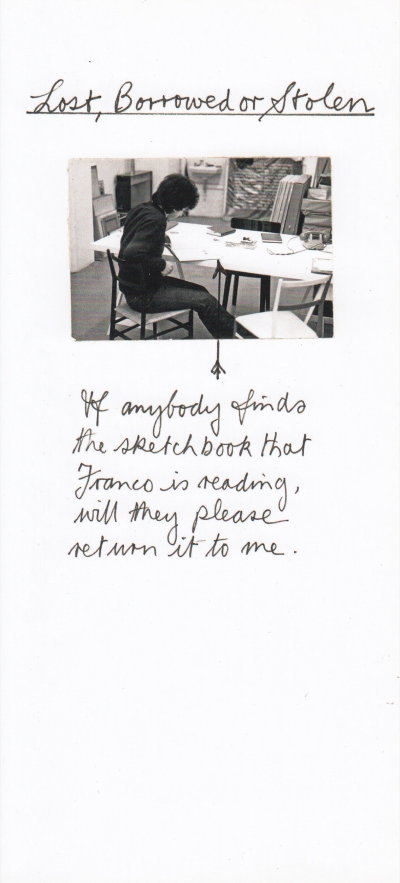 Lost, Borrowed or Stolen
If anybody finds
the sketchbook that
Franco is reading,
will they please
return it to me.